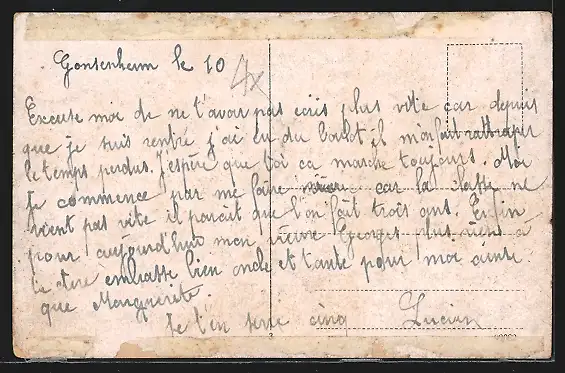 Gonsenheim le 10
4x
Excuse moi de ne t'avoir pas écris plus vite car depuis
que je suis rentré j'ai eu du boulot il m'en fait rattraper
le temps perdus. J'espère que toi ca marche toujours. Moi
je commence par me faire vieux car la classe ne
vient pas vite il parait que l'on fait trois ans. Enfin
pour aujourd'hui mon vieux Georges plus rien a
te dire embrasse bien oncle et tante pour moi ainsi
que Marguerite.
Je t'en serre cinq Lucien